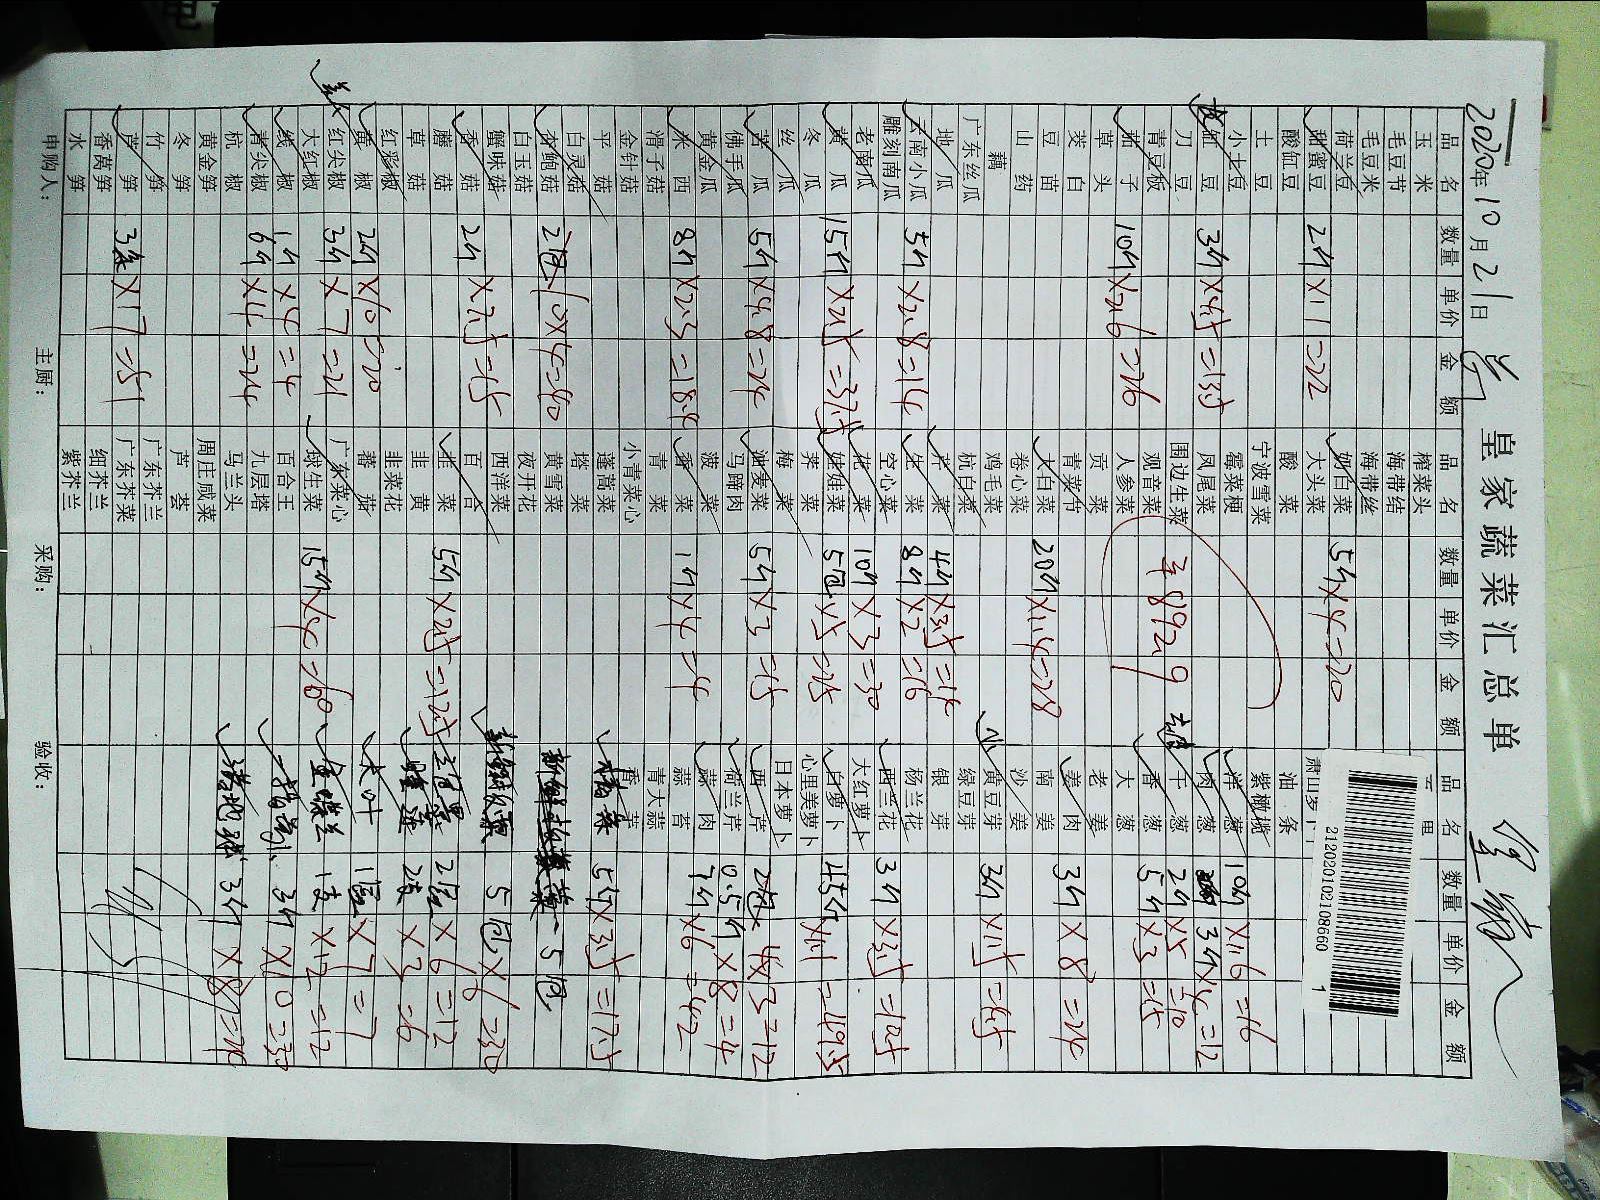 2020年10月21日 皇家蔬菜汇总单
品名 数量 单价 金额 品名 数量 单价 金额 品名 数量 单价 金额
玉米 榨菜头
毛豆节 海带结
毛豆米 海带丝
荷兰豆 奶白菜 5斤×4=20
甜蜜豆 2斤×11=22 大头菜
酸缸豆 酸菜 油条
土豆 宁波雪菜 紫橄榄
小土豆 霉菜梗 洋葱 10斤×1.6=16
缸豆 3斤×4.5=13.5 凤尾菜 肉葱 3斤×4=12
刀豆 围边生菜 干葱 2斤×5=10
青豆板 观音菜 香葱 5斤×3=15
茄子 10斤×2.6=26 人参菜 大葱
草头 贡菜 老姜
茭白 青菜 姜肉 3斤×8=24
豆苗 大白菜 20斤×1.4=28 南姜
山药 卷心菜 沙姜
藕 鸡毛菜 黄豆芽 3斤×1.5=4.5
广东丝瓜 杭白菜 绿豆芽
地瓜 芹菜 4斤×3.5=14 银芽
云南小瓜 5斤×2.8=14 生菜 8斤×2=16 杨兰花
雕刻南瓜 空心菜 西兰花 3斤×3.5=10.5
老南瓜 花菜 10斤×3=30 大红萝卜
黄瓜 15斤×2.5=37.5 娃娃菜 5包×5=25 白萝卜 45斤×1.1=49.5
冬瓜 荠菜 心里美萝卜
丝瓜 梅菜 日本萝卜
苦瓜 5斤×4.8=24 油麦菜 5斤×3=15 西芹 4×3=12
佛手瓜 马蹄肉 荷兰芹 0.5斤×8=4
黄金瓜 菠菜 蒜肉 7斤×6=42
米西 8斤×2.3=18.4 香菜 1斤×4=4 蒜苔
滑子菇 青菜 青大蒜
金针菇 小青菜心 香芋
平菇 蓬蒿菜 5斤×3.5=17.5
白灵菇 塔菜
杏鲍菇 2包 10×4=40 黄雪菜 5包
白玉菇 夜开花
蟹味菇 西洋菜 5包×6=30
香菇 2斤×7.5=15 百合
蘑菇 韭菜 5斤×2.5=12.5 2包×6=12
草菇 韭黄 2支×3=6
红彩椒 韭菜花
黄椒 2斤×10=20 蕃茄 大叶 1包×7=7
红尖椒 3斤×7=21 广东菜心
大红椒 球生菜 15斤×4=60 金蝶兰 1支×12=12
线椒 1斤×4=4 百合王 3斤×10=30
青尖椒 6斤×4=24 九层塔
杭椒 马兰头 3斤×8=24
黄金笋 周庄咸菜
冬笋 芦荟
竹笋 广东芥兰
芦笋 3条×17=51 广东芥菜
香莴笋 细芥兰
水笋 紫芥兰
申购人： 主厨： 采购： 验收：
212020102108660 1